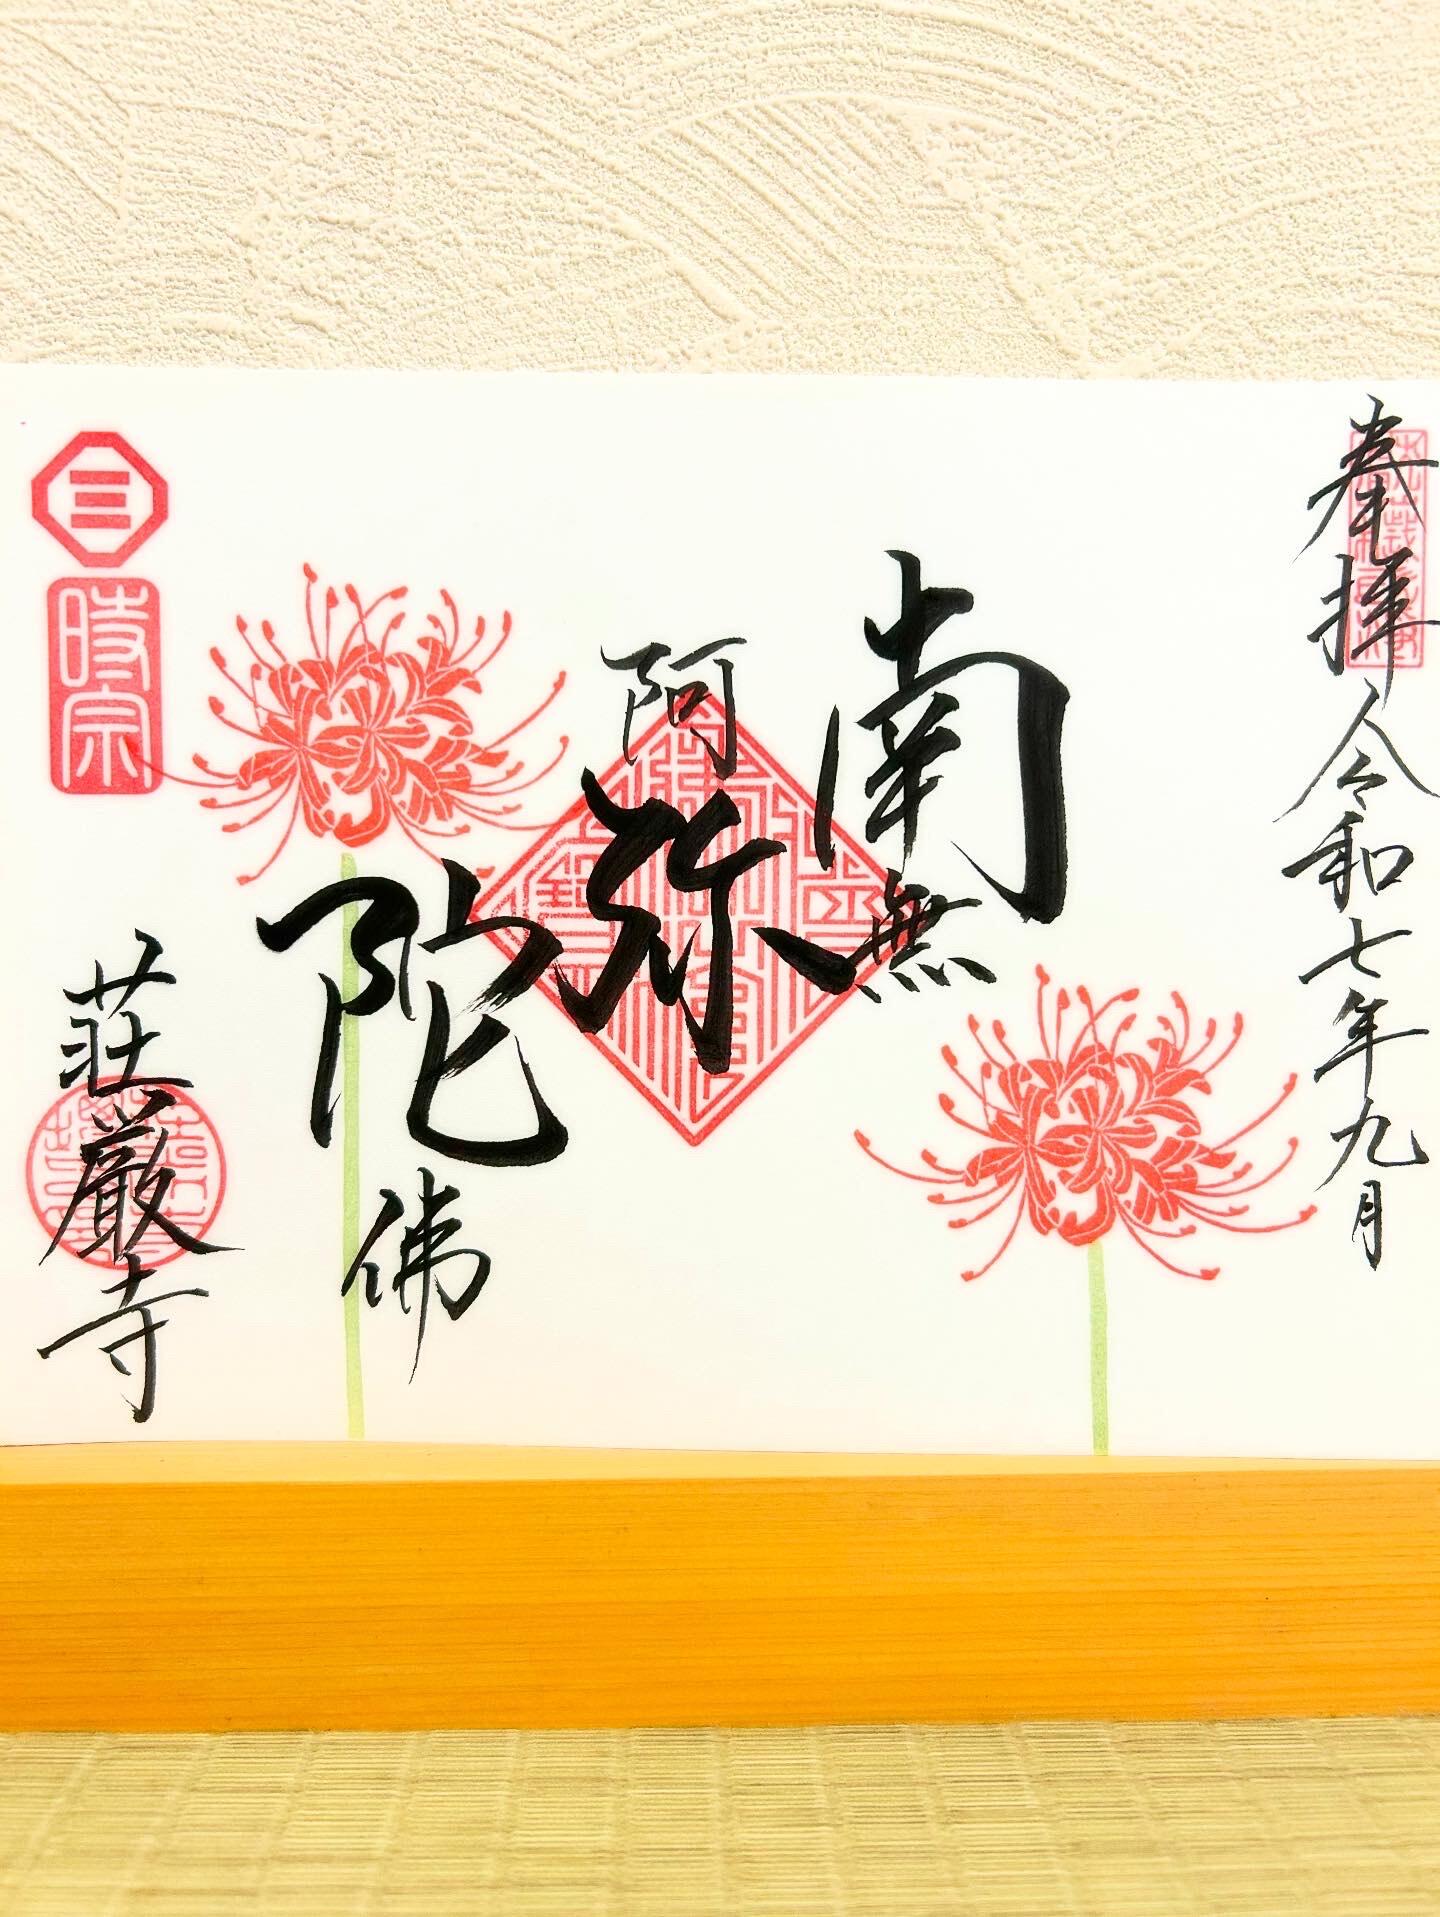 奉拝 令和七年九月
南無
阿弥
陀佛
時宗
荘厳寺